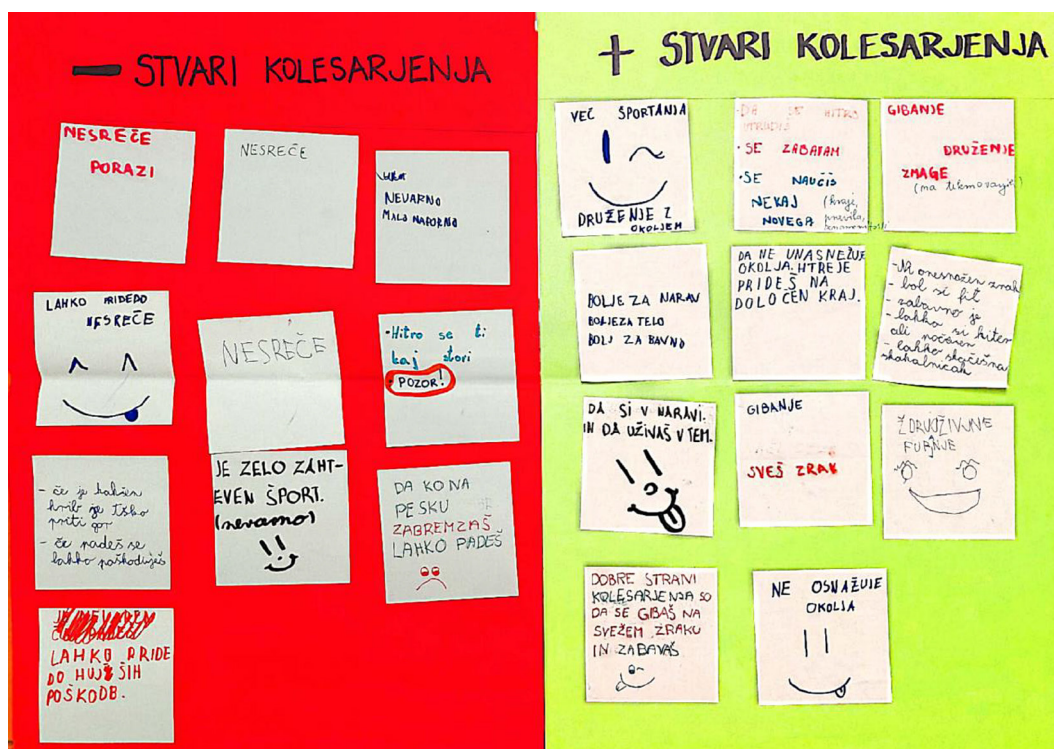 — STVARI KOLESARJENJA
NESREČE
PORAZI
NESREČE
NEVARNO
MALO NAPORNO
LAHKO PRIDEDO
NESREČE
NESREČE
-Hitro se ti
kaj stori
- POZOR!
- če je kakšen
hrib je težko
priti gor
- če padeš se
lahko poškoduješ
JE ZELO ZAHT-
EVEN ŠPORT.
(nevarno)
DA KO NA
PESKU
ZABREMZAŠ
LAHKO PADEŠ
LAHKO PRIDE
DO HUJŠIH
POŠKODB.
+ STVARI KOLESARJENJA
VEČ ŠPORTANJA
DRUŽENJE Z
OKOLJEM
-DA SE HITRO
UTRUDIŠ
•SE ZABAVAM
•SE NAUČIŠ
NEKAJ (kraje,
NOVEGA pravila,
GIBANJE
DRUŽENJE
ZMAGE
(na tekmovanjih)
BOLJE ZA NARAV
BOLJEZA TELO
BOLJ ZA BAVNO
DA NE UNASNEŽUJE
OKOLJA. HTREJE
PRIDEŠ NA
DOLOČEN KRAJ.
-Ni onesnažen zrak
- bol si fit
- zabavno je
- lahko si hiter
ali počasen
- lahko skačeš na
skakalnicah
DA SI V NARAVI.
IN DA UŽIVAŠ V TEM.
GIBANJE
SVEŠ ZRAK
DOBRE STRANI
KOLESARJENJA SO
DA SE GIBAŠ NA
SVEŽEM ZRAKU
IN ZABAVAŠ
NE OSNAŽUJE
OKOLJA